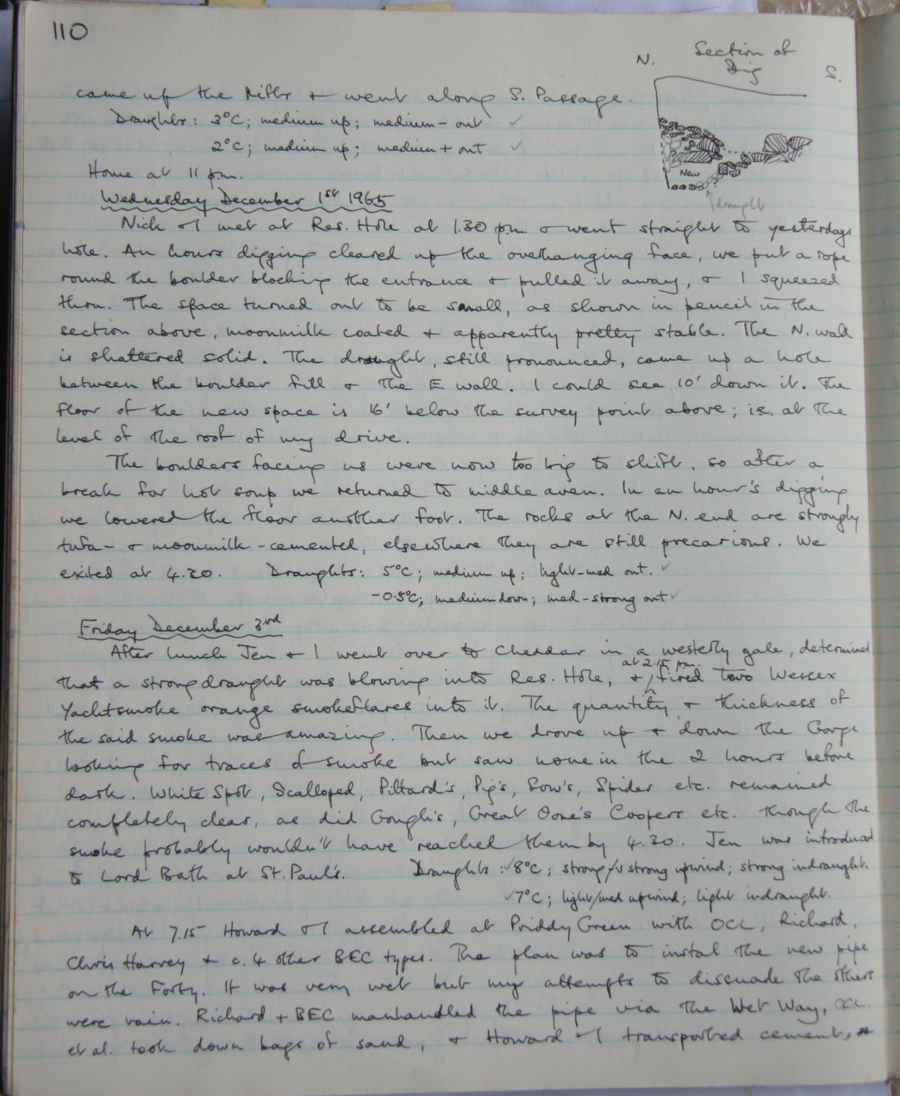 110
N. Section of Dig S.
New
draught
came up the Rifts & went along S. Passage.
Draughts: 3°C; medium up; medium - out ✓
2°C; medium up; medium + out ✓
Home at 11 pm.
Wednesday December 1st 1965
Nick & I met at Res. Hole at 1.30 pm & went straight to yesterdays
hole. An hours digging cleared up the overhanging face, we put a rope
round the boulder blocking the entrance & pulled it away, & I squeezed
thru. The space turned out to be small, as shown in pencil in the
section above, moonmilk coated & apparently pretty stable. The N. wall
is shattered solid. The draught, still pronounced, came up a hole
between the boulder fill & the E wall. I could see 10' down it. The
floor of the new space is 16' below the survey point above; i.e. at the
level of the roof of my drive.
The boulders facing us were now too big to shift, so after a
break for hot soup we returned to middle aven. In an hour's digging
we lowered the floor another foot. The rocks at the N. end are strongly
tufa- & moonmilk-cemented, elsewhere they are still precarious. We
exited at 4.20. Draughts: 5°C; medium up; light-med out. ✓
-0.5°C; medium down; med-strong out ✓
Friday December 3rd
After lunch Jen & I went over to Cheddar in a westerly gale, determined
that a strong draught was blowing into Res. Hole, & at 2.15 pm. fired two Wessex
Yachtsmoke orange smokeflares into it. The quantity & thickness of
the said smoke was amazing. Then we drove up & down the Gorge
looking for traces of smoke but saw none in the 2 hours before
dark. White Spot, Scalloped, Pillard's, Pig's, Sow's, Spider etc. remained
completely clear, as did Gough's, Great Oone's Coopers etc. though the
smoke probably wouldn't have reached them by 4.30. Jen was introduced
to Lord Bath at St. Paul's. Draughts: ✓ 8°C; strong/v strong upwind; strong indraught.
✓ 7°C; light/med upwind; light indraught.
At 7.15 Howard & I assembled at Priddy Green with OCL, Richard,
Chris Harvey & c. 4 other BEC types. The plan was to instal the new pipe
on the Forty. It was very wet but my attempts to dissuade the others
were vain. Richard & BEC manhandled the pipe via the Wet Way, OCL
et al. took down bags of sand, & Howard & I transported cement,